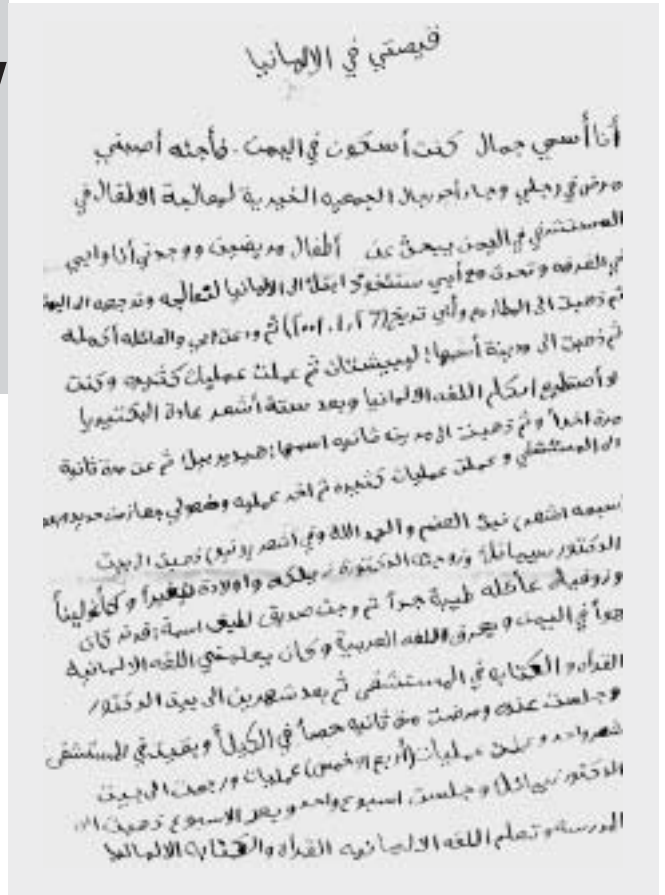 قيصتي في الالمانيا
أنا أسمي جمال كنت أسكون في اليمن. فأجئه أصبني
مرض في رجلي وجاء أحد رجال الجمعيه الخيرية لمعالجة الاطفال في
المستشفي في اليمن يبحث عن أطفال مريضين ووجدني أنا وابي
في الغرفه وتحدث مع أبي سنئخوذ ابنك الى الالمانيا لتعالجه ونرجعه الى اليمن
ثم ذهبت الى المطار مع وأبي تريخ ثم ودعت امي والعائله أكمله
ثم ذهبت الى مدينة أسمها: ثم عملت عمليات كثيره وكنت
لا أصطيع اتكلم اللغه الالمانيا وبعد ستة أشهر عادة البكتيريا
مرة اخدا وثم ذهبت الى مدينه ثانيه اسمها: ثم عن مرة ثانية
الى المستشفي وعملت عمليات كثيره ثم اخر عمليه وضعولي جهاز من حديد وبعد
سبعه اشهر العضم والحمد الله وفي أشهر (يونيو) ذهبت الى بيت
الدكتور وزوجته الدكتورة واولادة
عائله طيبة جداً ثم وجت صديق لطيف اسمة: كان
هوا في اليمن و يعرف اللغه العربية وكان يعلمني اللغه الالمانيه
القرأه و الكتابه في المستشفى ثم بعد شهرين الى بيت الدكتور
وجلست عنده ومرضت مرة ثانيه حصاً في الكيلاً وبقيت في المستشفى
شهر واحد عمليات (أربع او خمس) عمليات ورجعت الى بيت
الدكتور وجلست اسبوع واحد و بعد الاسبوع ذهبت الى
المدرسه وتعلم اللغه الالمانيه القرأه والكتابه